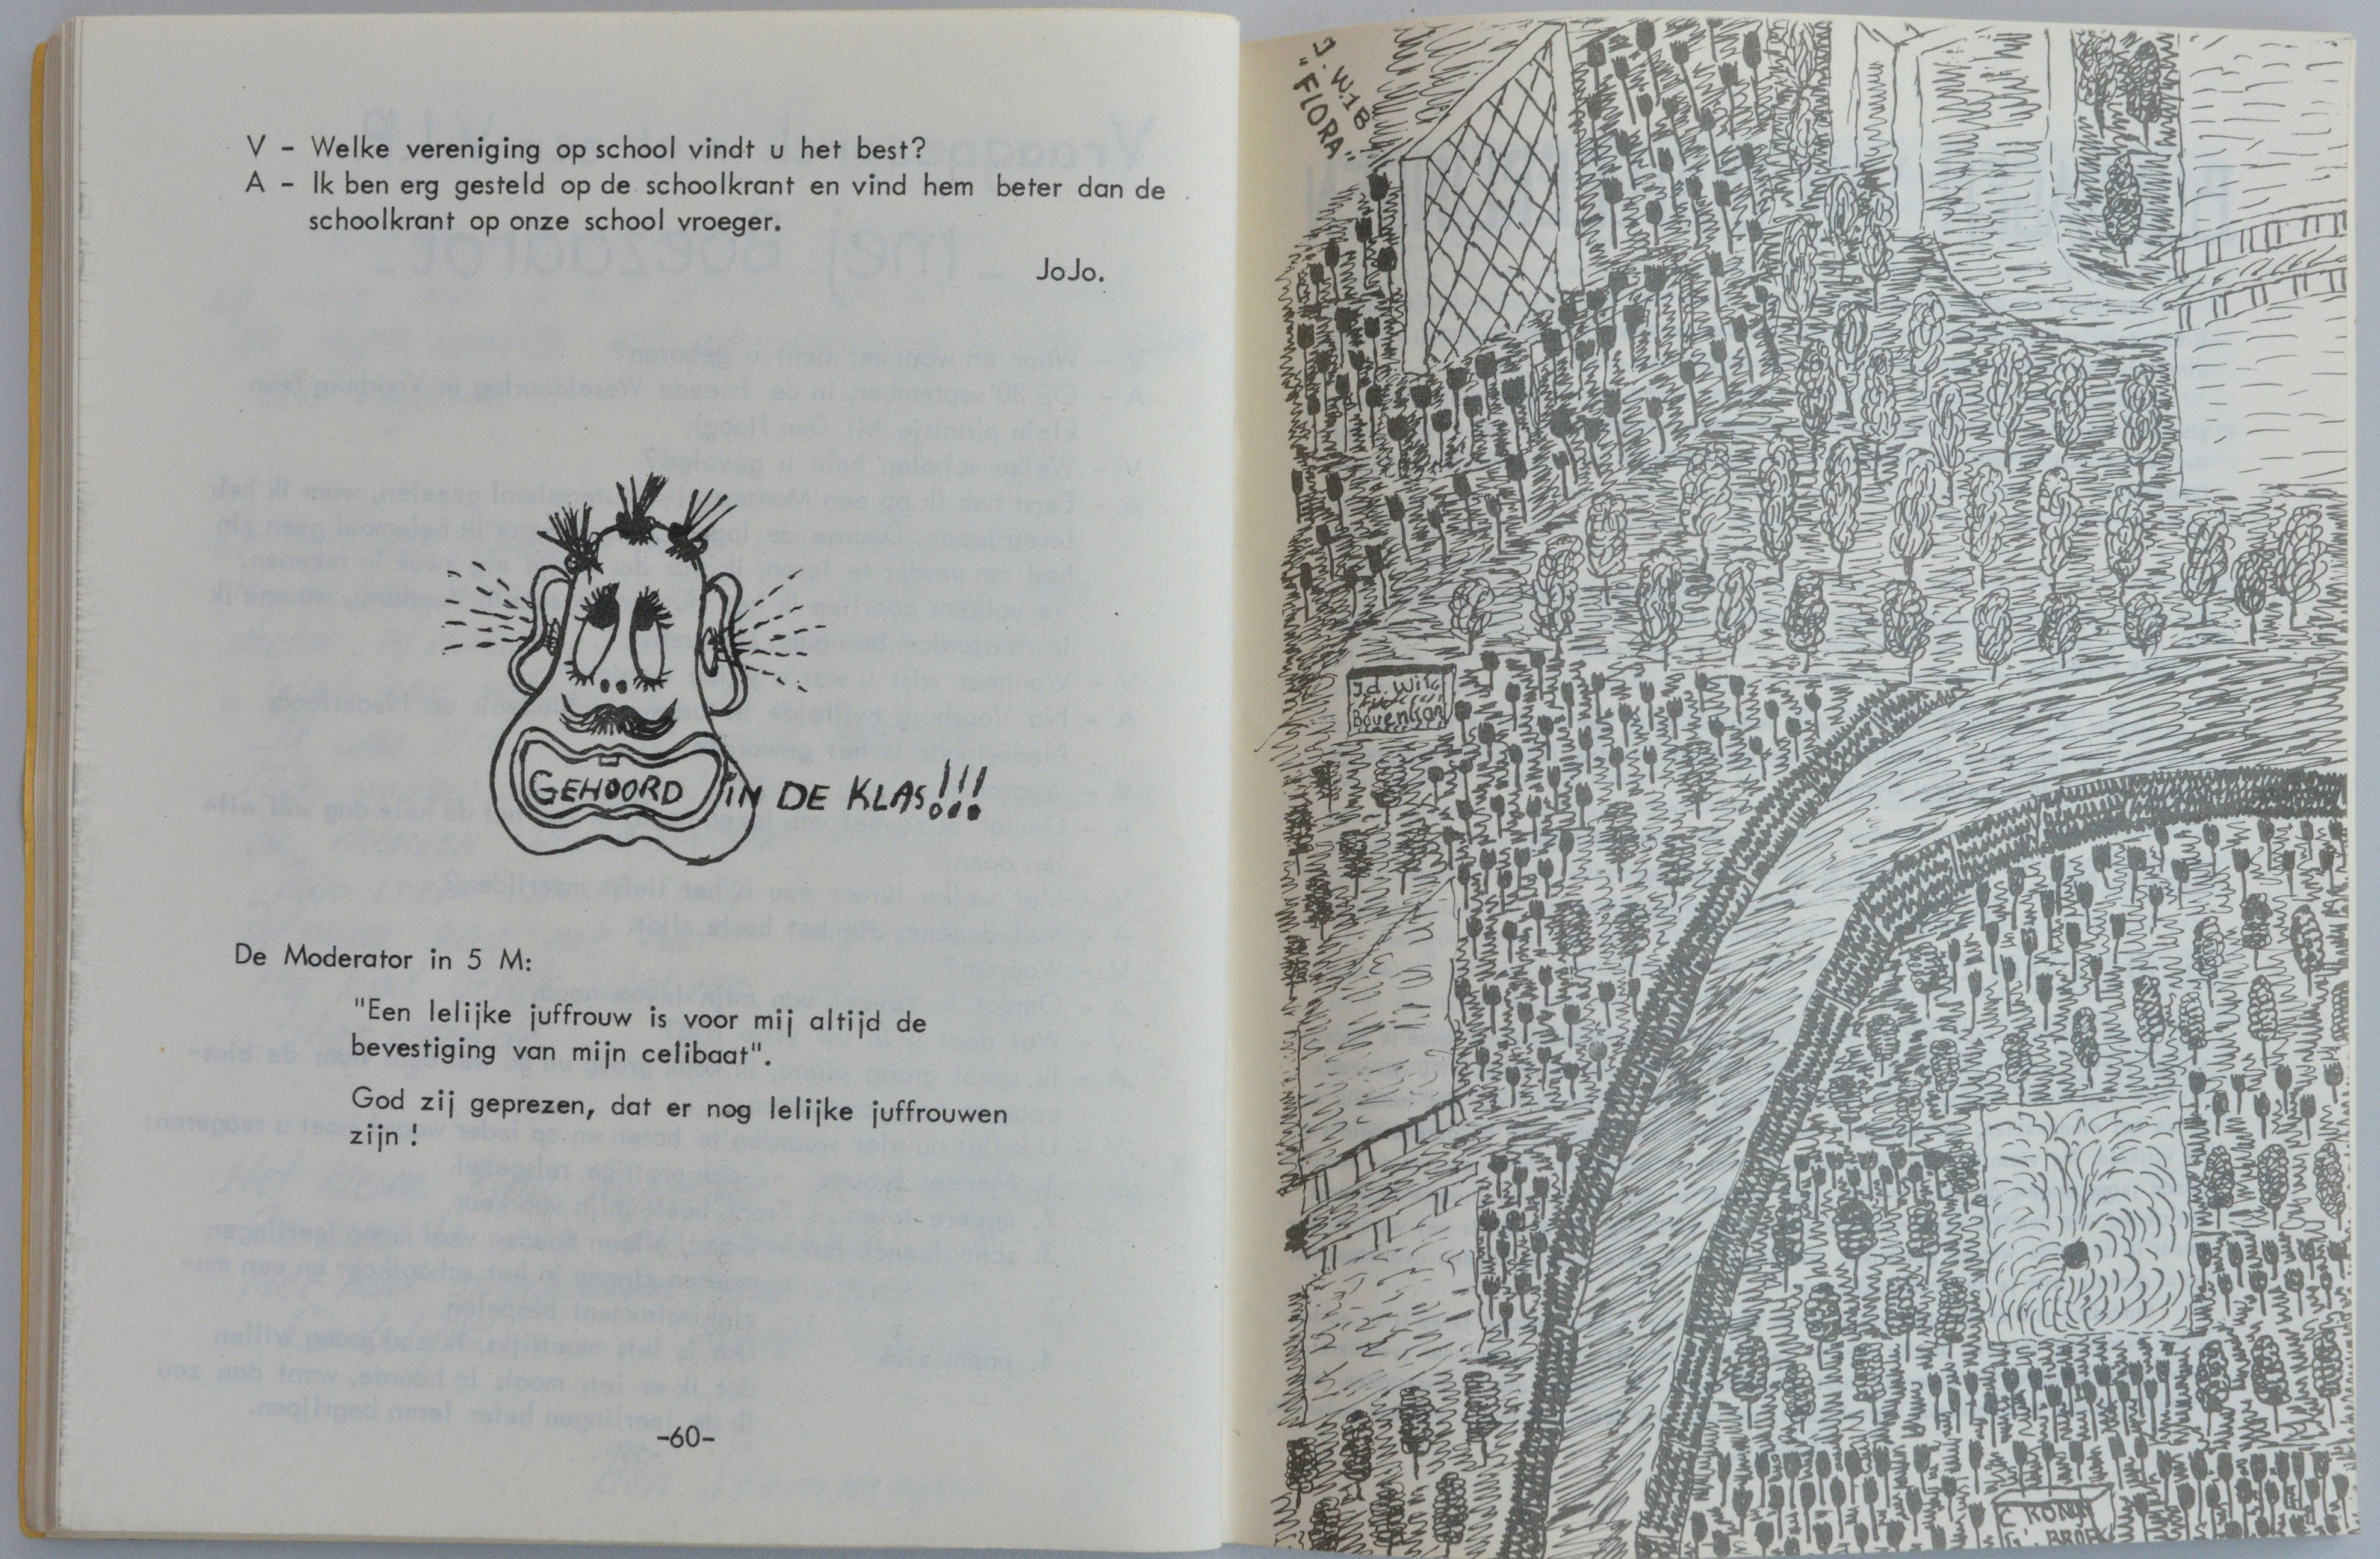 V - Welke vereniging op school vindt u het best?
A - Ik ben erg gesteld op de schoolkrant en vind hem beter dan de
schoolkrant op onze school vroeger.
JoJo.
GEHOORD IN DE KLAS!!!
De Moderator in 5 M:
"Een lelijke juffrouw is voor mij altijd de
bevestiging van mijn celibaat".
God zij geprezen, dat er nog lelijke juffrouwen
zijn!
-60-
J. W. 1B
"FLORA"
J.d. Wit